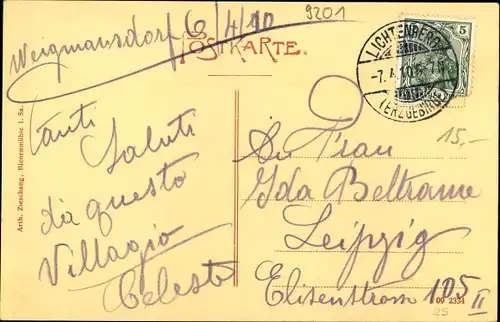 Weigmansdorf 6/4/10
9201
POSTKARTE.
LICHTENBERG
-7.4.10.
(ERZGEBIRGE)
5
15,-
Tanti
Saluti
da questo
Villagio
Celeste
An Frau
Ida Beltrame
Leipzig
Elisenstrasse 105 II
Arth. Zieschang, Bienenmühle i. Sa.
09 2334
25